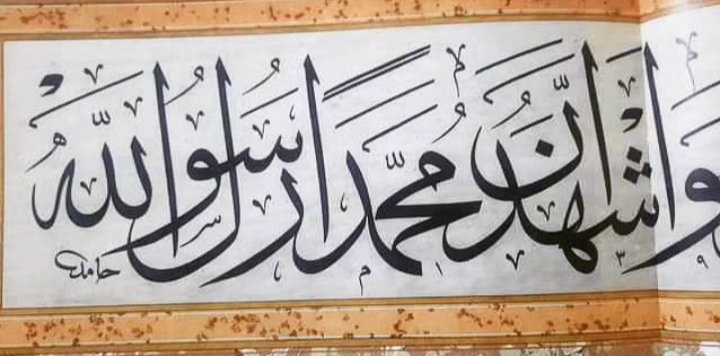 وَاشْهَدُ اَنَّ مُحَمَّدًا رَسُولُ اللّٰهِ
حامد